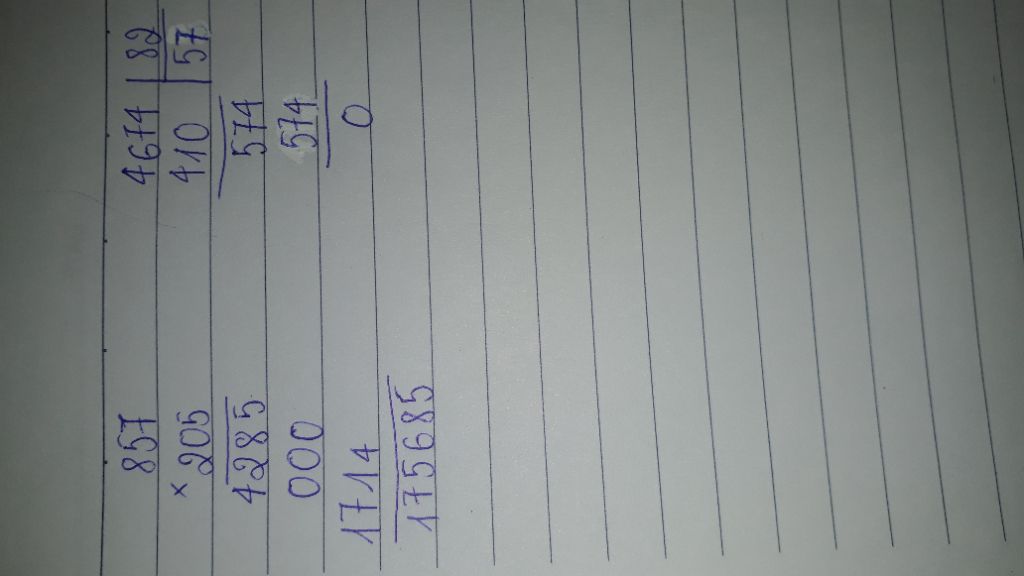 857
× 205
4285
000
1714
175685
4674 | 82
410 | 57
574
574
0